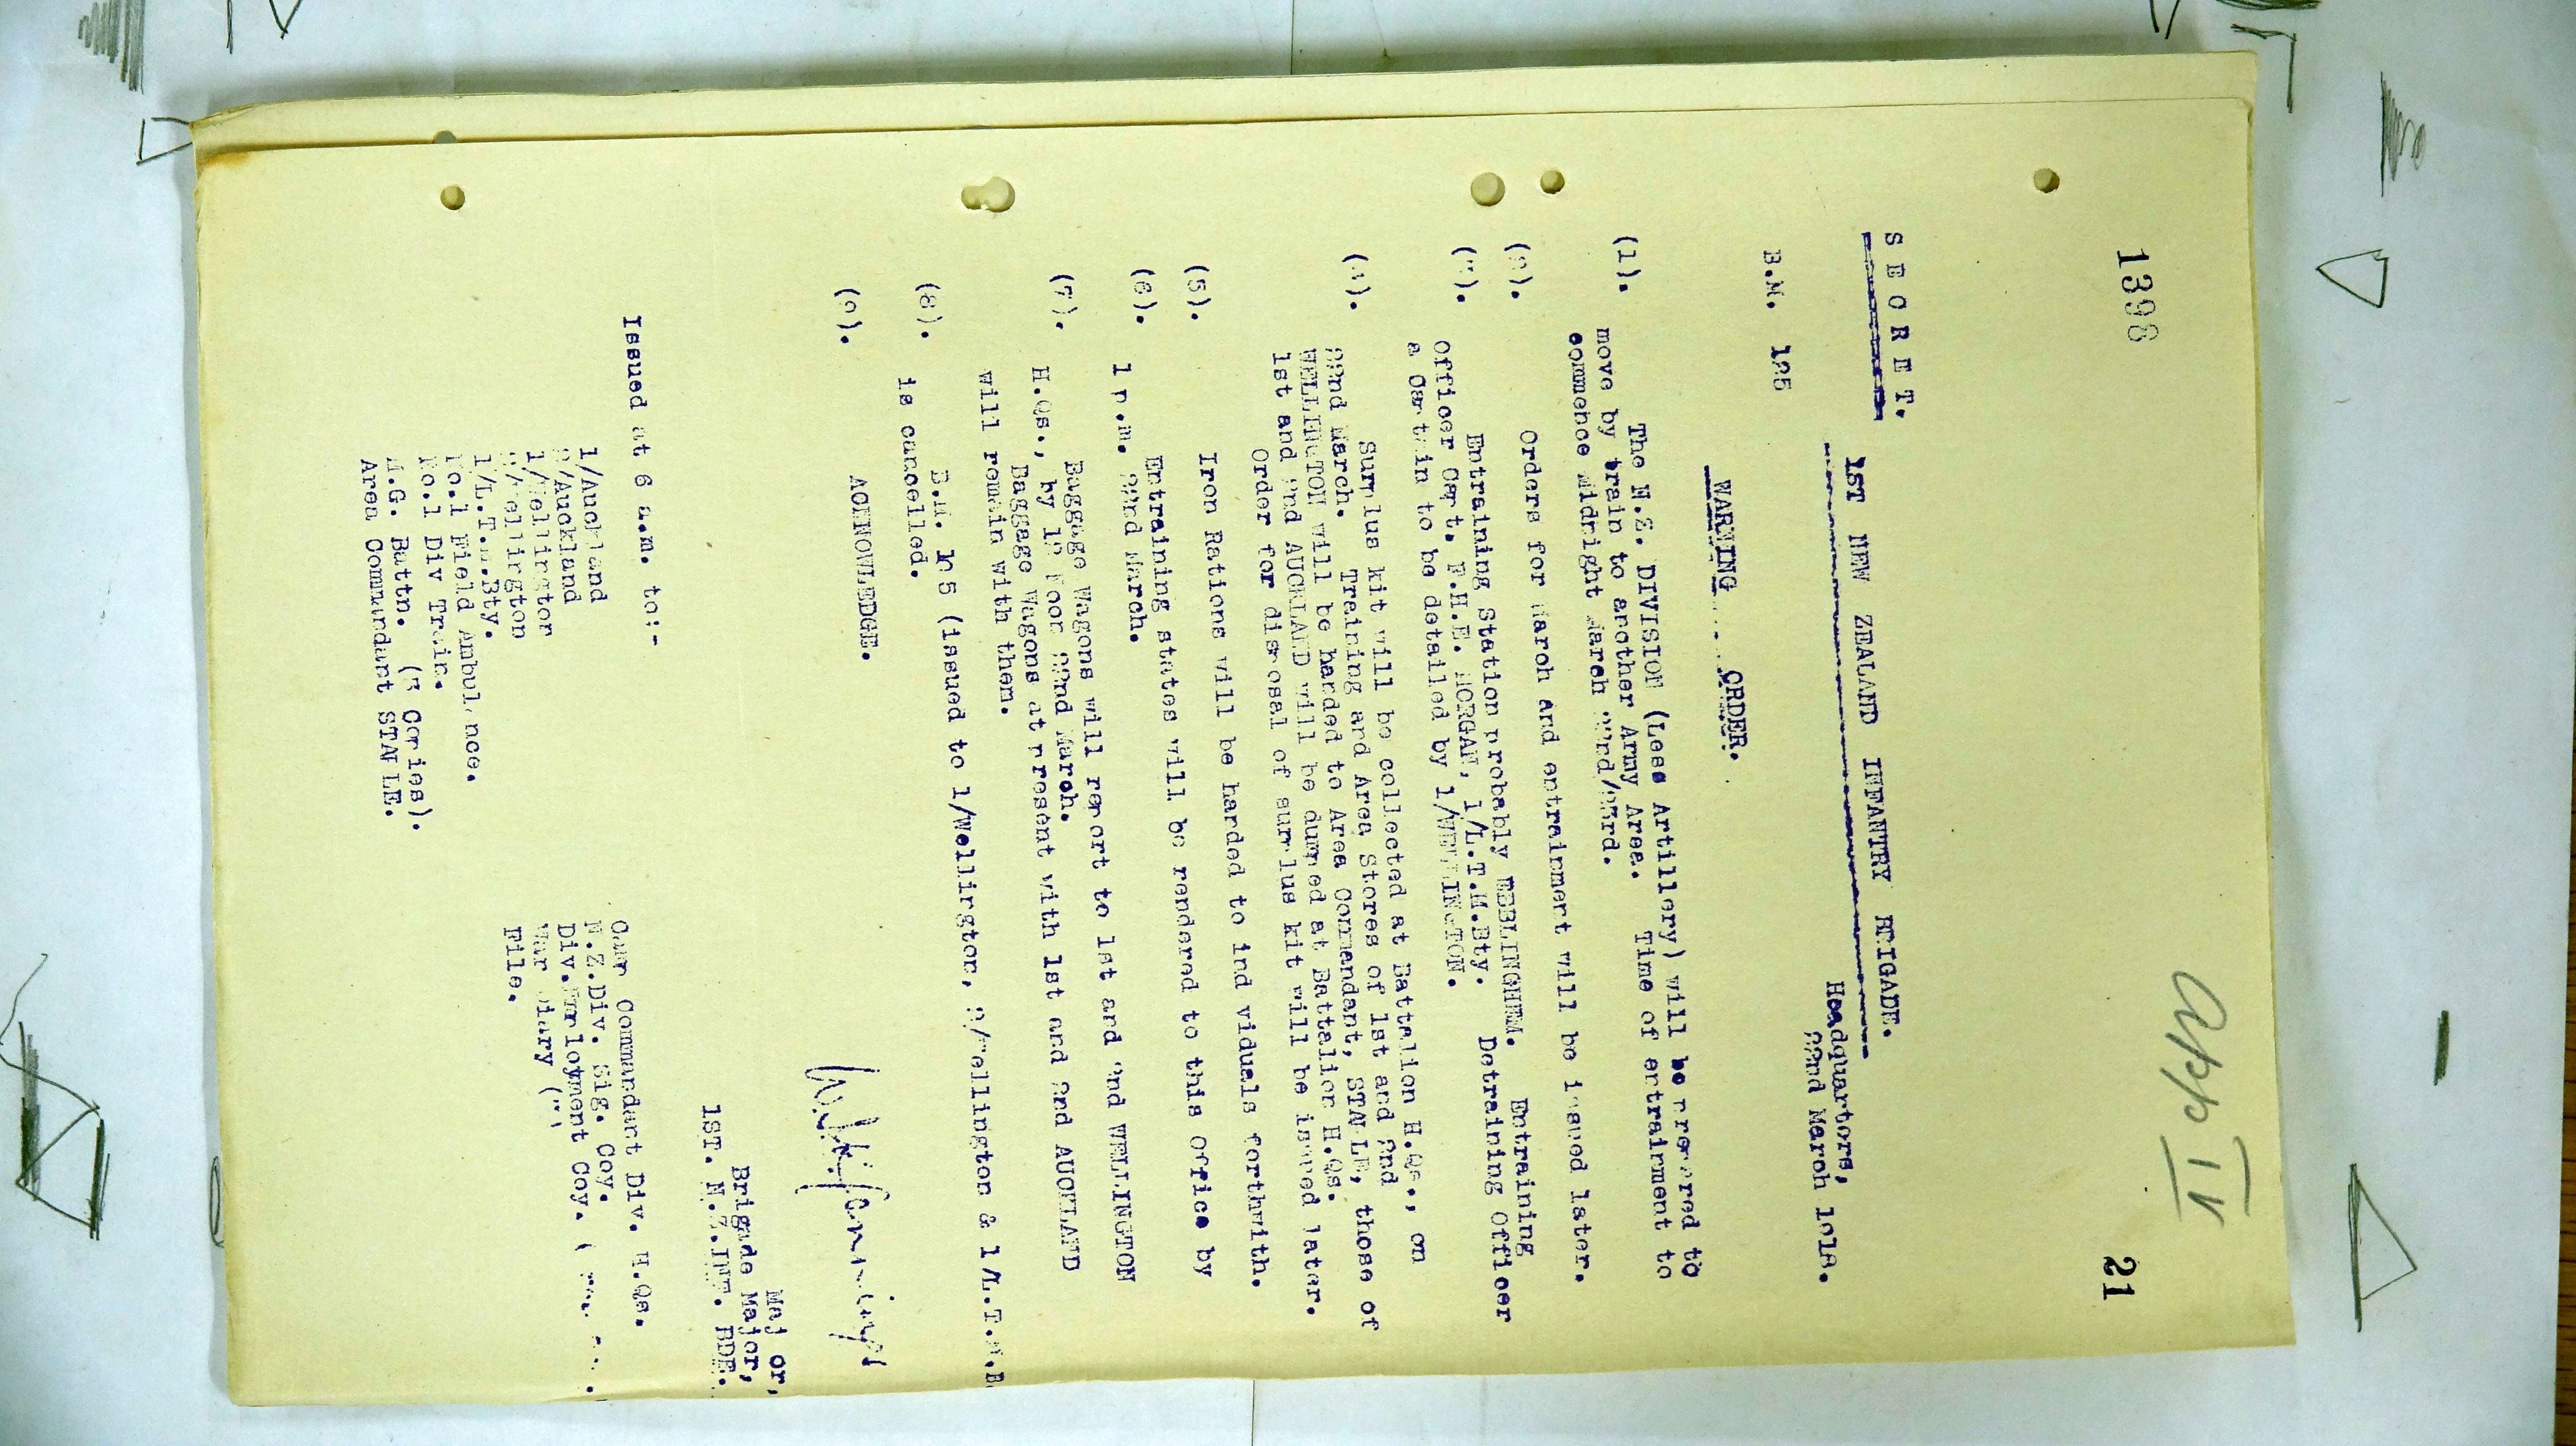 1398
app II
21
S E C R E T.
1ST NEW ZEALAND INFANTRY BRIGADE.
B.M. 185
Headquarters,
22nd March 1918.
WARNING ORDER.
(1). The N.Z. DIVISION (Less Artillery) will be prepared to
move by train to another Army Area. Time of entrainment to
commence midnight March 22nd/23rd.
(2). Orders for March and entrainment will be issued later.
(3). Entraining Station probably EBBLINGHEM. Entraining
Officer Capt. F.H.E. MORGAN, 1/L.T.M.Bty. Detraining Officer
a Captain to be detailed by 1/WELLINGTON.
(4). Surplus kit will be collected at Battalion H.Qs., on
22nd March. Training and Area Stores of 1st and 2nd
WELLINGTON will be handed to Area Commandant, STAPLE, those of
1st and 2nd AUCKLAND will be dumped at Battalion H.Qs.
Order for disposal of surplus kit will be issued later.
(5). Iron Rations will be handed to individuals forthwith.
(6). Entraining states will be rendered to this office by
1 p.m. 22nd March.
(7). Baggage Wagons will report to 1st and 2nd WELLINGTON
H.Qs., by 12 Noon 22nd March.
Baggage Wagons at present with 1st and 2nd AUCKLAND
will remain with them.
(8). B.M. 1 5 (issued to 1/Wellington, 2/Wellington & 1/L.T.M.B
is cancelled.
(9). ACKNOWLEDGE.
Major,
Brigade Major,
1ST. N.Z.INF. BDE.
Issued at 6 a.m. to:-
1/Auckland
2/Auckland
1/Wellington
2/Wellington
1/L.T.M.Bty.
No.1 Field Ambulance.
No.1 Div Train.
M.G. Battn. (3 Copies).
Area Commandant STAPLE.
Camp Commandant Div. H.Qs.
N.Z.Div. Sig. Coy.
Div.Employment Coy. (
War Diary (3)
File.